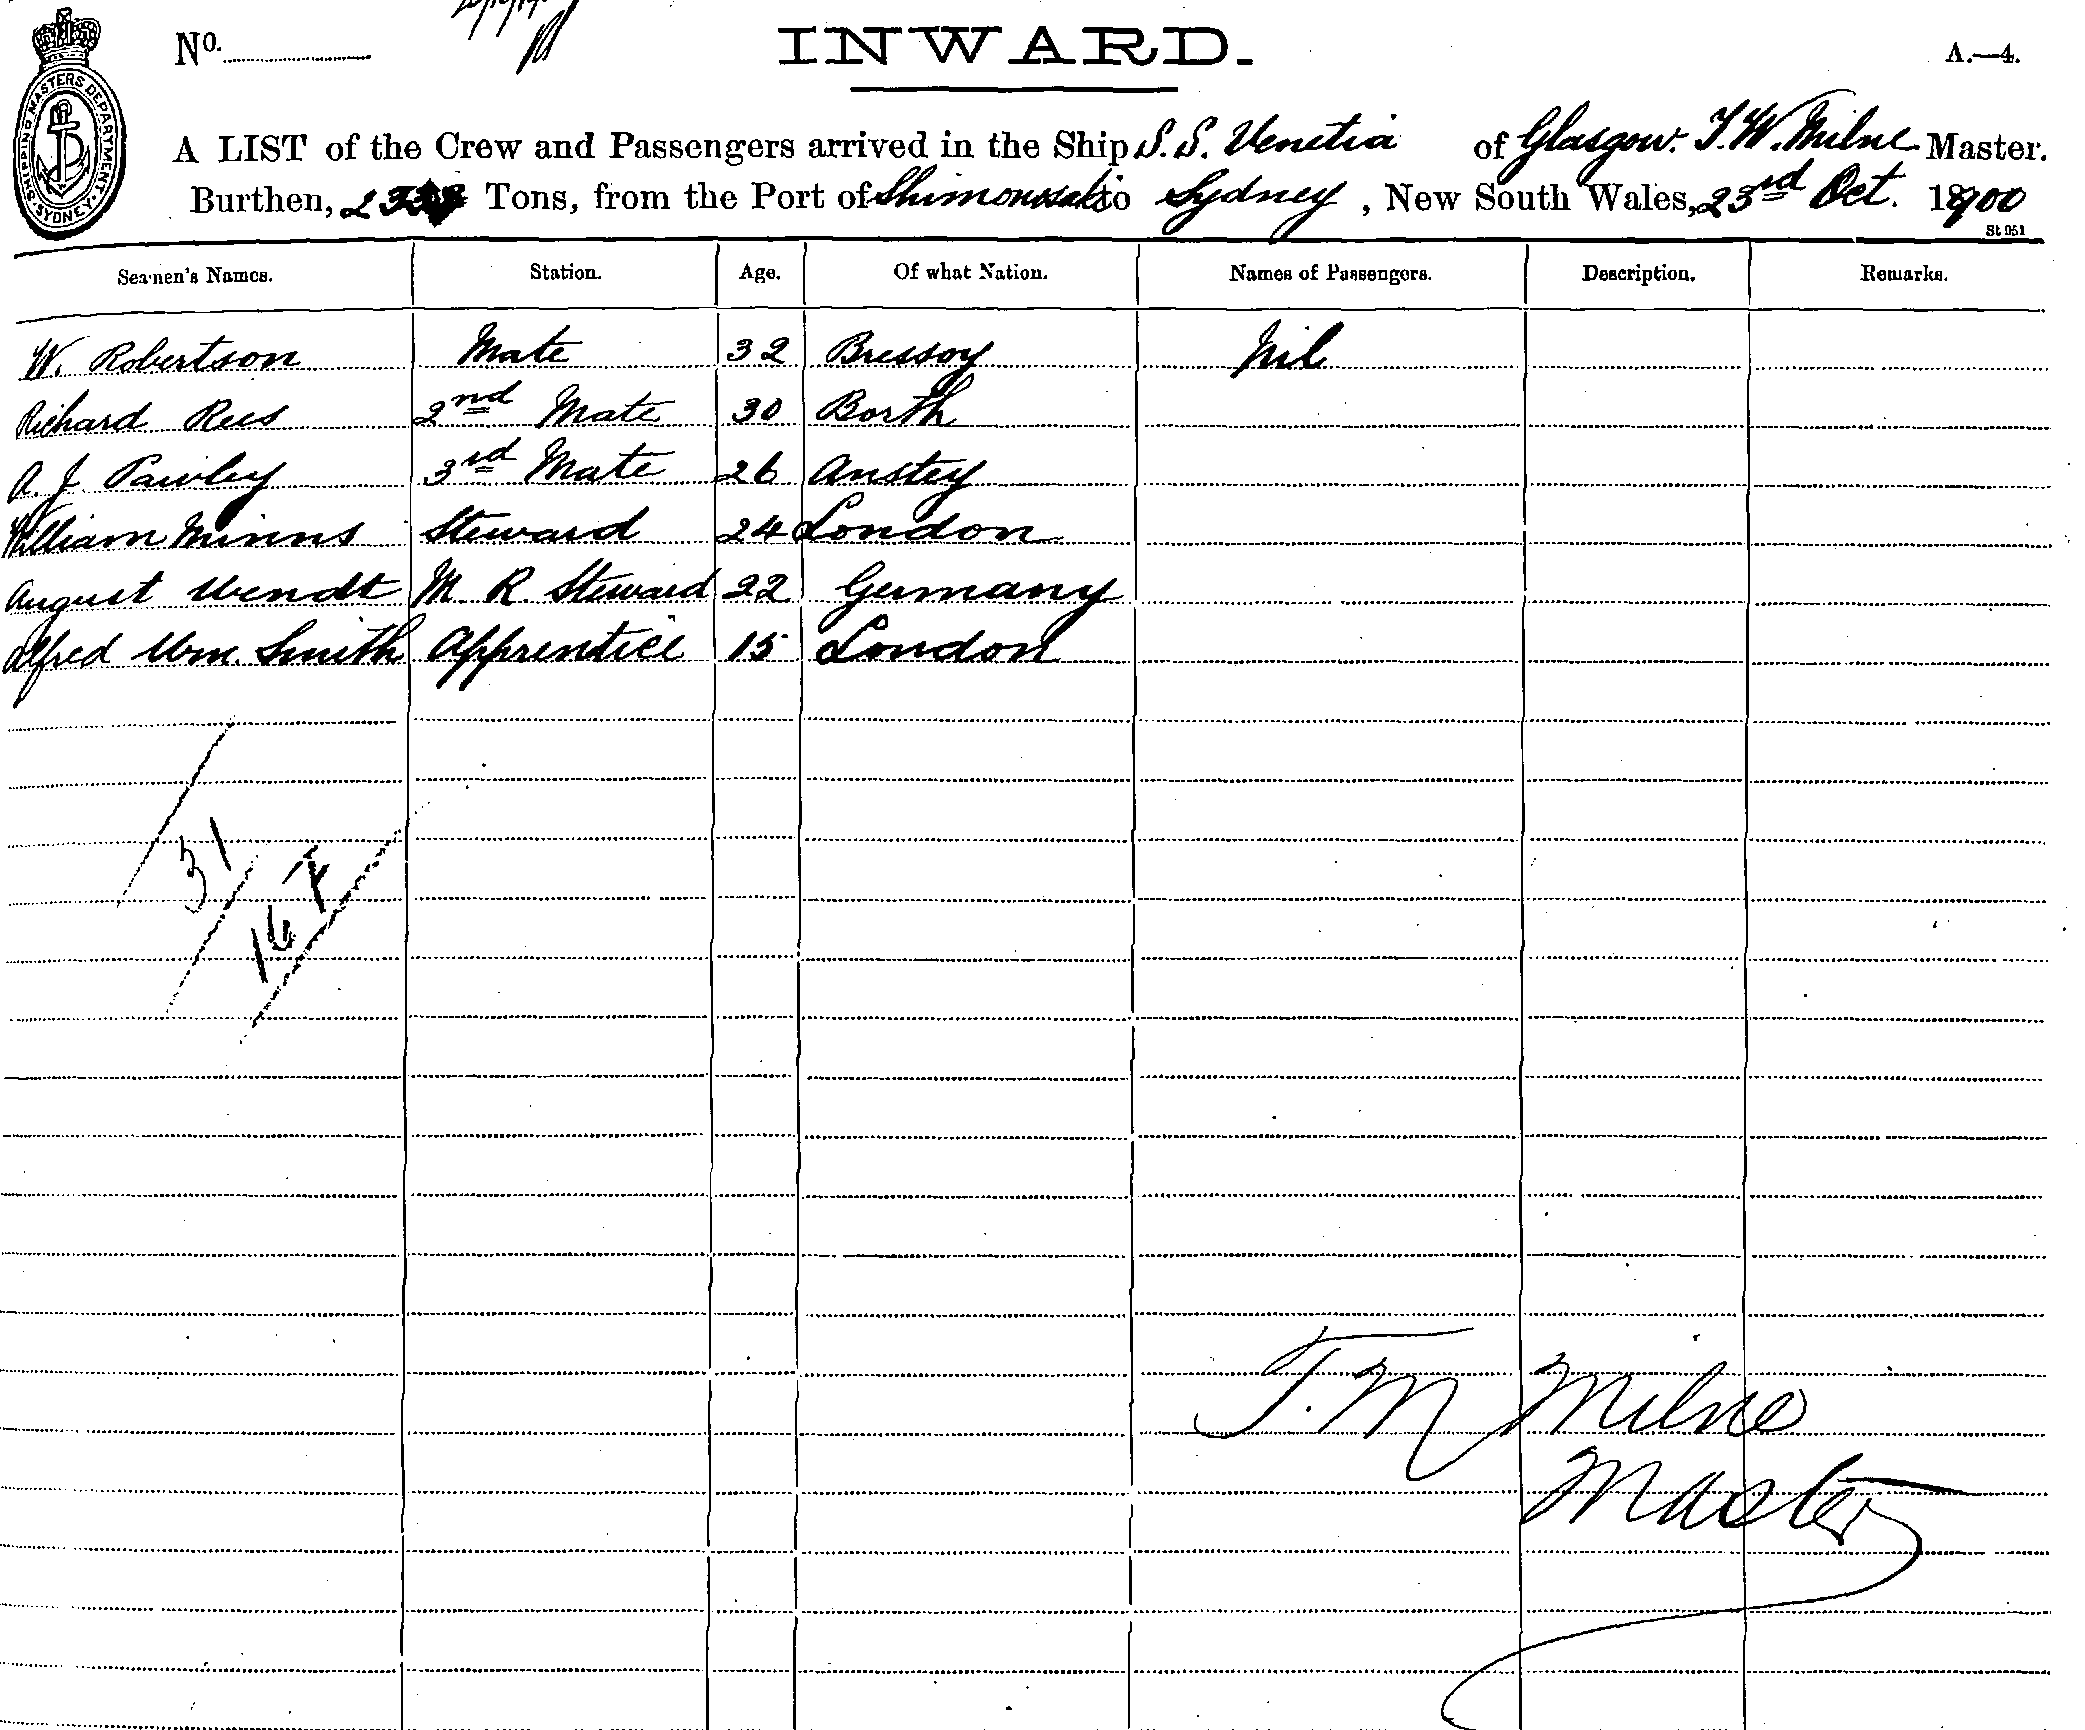 No.
INWARD.
A.—4.
SHIPPING MASTERS DEPARTMENT. SYDNEY.
A LIST of the Crew and Passengers arrived in the Ship S.S. Venetia of Glasgow. T.W. Milne Master.
Burthen, Tons, from the Port of to Sydney, New South Wales, 23rd Oct. 1900
St 951
Seamen's Names. Station. Age. Of what Nation. Names of Passengers. Description. Remarks.
W. Robertson Mate 32 Bressoy Nil
Richard Rees 2nd Mate 30 Borth
A. J. Pawley 3rd Mate 26 Anstey
William Minns Steward 24 London
August Wendt M. R. Steward 22 Germany
Alfred Wm. Smith Apprentice 15 London
31
16 7
T. M Milne
Master